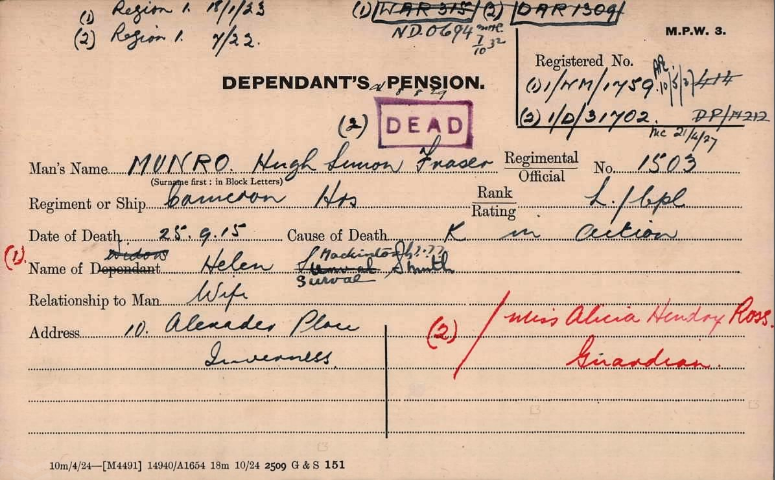 (1) Region 1. 18/1/23 (1) WAR 315 (2) DAR 1309
(2) Region 1. 7/22. ND.0694 7/10/32
M.P.W. 3.
Registered No.
DEPENDANT'S PENSION.
(1) 1/WM/1759. 414
(2) DEAD
(2) 1/D/31702. DP/
21/4/27
Man's Name MUNRO. Hugh Simon Fraser Regimental Official No. 1503
(Surname first: in Block Letters)
Regiment or Ship Cameron Hrs Rank Rating L./Cpl
Date of Death 25.9.15 Cause of Death K in action
Widow's
(1) Name of Dependant Helen Mackintosh Smith
Relationship to Man Wife
Address 10. Alexader Place (2) Miss Alicia Hendry Ross.
Inverness. Guardian.
10m/4/24—[M4491] 14940/A1654 18m 10/24 2509 G & S 151